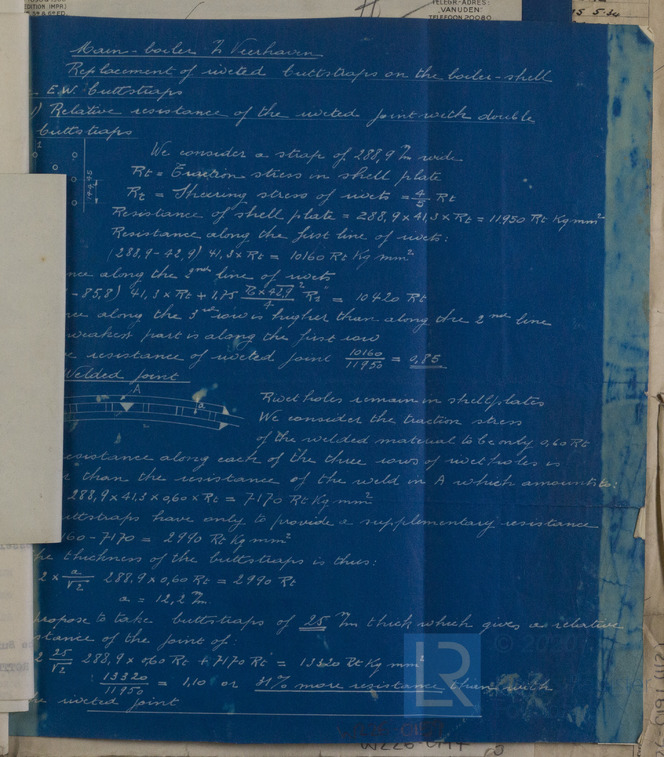 TELEGR.-ADRES:
"VANUDEN"
TELEFOON 20080
5-34
Main-boiler Veerhaven
Replacement of riveted buttstraps on the boiler-shell
E.W. buttstraps
1) Relative resistance of the riveted joint with double
buttstraps
We consider a strap of 288,9 m/m wide
Rt = Traction stress in shell plate
= Shearing stress of rivets = 4/5 Rt
Resistance of shell plate = 288,9 x 41,3 x Rt = 11950 Rt Kg mm²
Resistance along the first line of rivets:
(288,9 - 42,9) 41,3 x Rt = 10160 Rt Kg mm²
along the 2nd line of rivets
- 85,8) 41,3 x Rt + 1,75 = 10420 Rt
along the 3rd row is higher than along the 2nd line
weakest part is along the first row
resistance of riveted joint 10160/11950 = 0,85
Welded joint
A
a
Rivet holes remain in shellplates
We consider the traction stress
of the welded material to be only 0,60 Rt
resistance along each of the three rows of rivet holes is
than the resistance of the weld in A which amounts to:
288,9 x 41,3 x 0,60 x Rt = 7170 Rt Kg mm²
buttstraps have only to provide a supplementary resistance
160 - 7170 = 2990 Rt Kg mm²
thickness of the buttstraps is thus:
2 x a/√2 288,9 x 0,60 Rt = 2990 Rt
a = 12,2 m/m
propose to take buttstraps of 25 m/m thick which gives a relative
stance of the joint of:
2 25/√2 288,9 x 0,60 Rt + 7170 Rt = 13320 Rt Kg mm²
13320/11950 = 1,10 or 31% more resistance than with
riveted joint
LR
© 2020